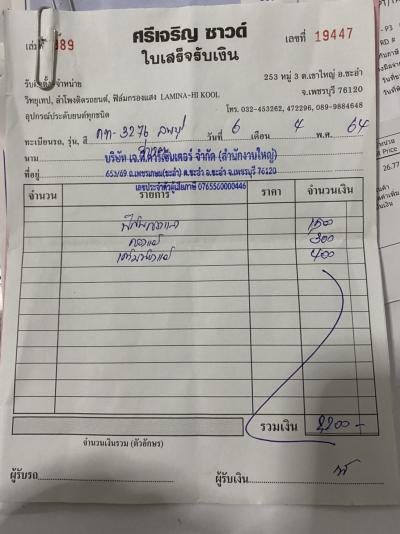 ศรีเจริญ ซาวด์
เล่มที่ 389
เลขที่ 19447
ใบเสร็จรับเงิน
วิทยุเทป, ลำโพงติดรถยนต์, ฟิล์มกรองแสง LAMINA-HI KOOL
อุปกรณ์ประดับยนต์ทุกชนิด
253 หมู่ 3 ต.เขาใหญ่ อ.ชะอำ
จ.เพชรบุรี 76120
โทร. 032-453262, 472296, 089-9884648
ทะเบียนรถ, รุ่น, สี กท-3276 วันที่ 6 เดือน 4 พ.ศ. 64
นาม บริษัท เจ.ที.คาร์เซ็นเตอร์ จำกัด (สำนักงานใหญ่)
ที่อยู่ 653/69 ถ.เพชรเกษม(ชะอำ) ต.ชะอำ อ.ชะอำ จ.เพชรบุรี 76120
เลขประจำตัวผู้เสียภาษี 0765560000446
จำนวน รายการ ราคา จำนวนเงิน
1500
300
400
รวมเงิน 2200-
จำนวนเงินรวม (ตัวอักษร)
ผู้รับรถ ผู้รับเงิน